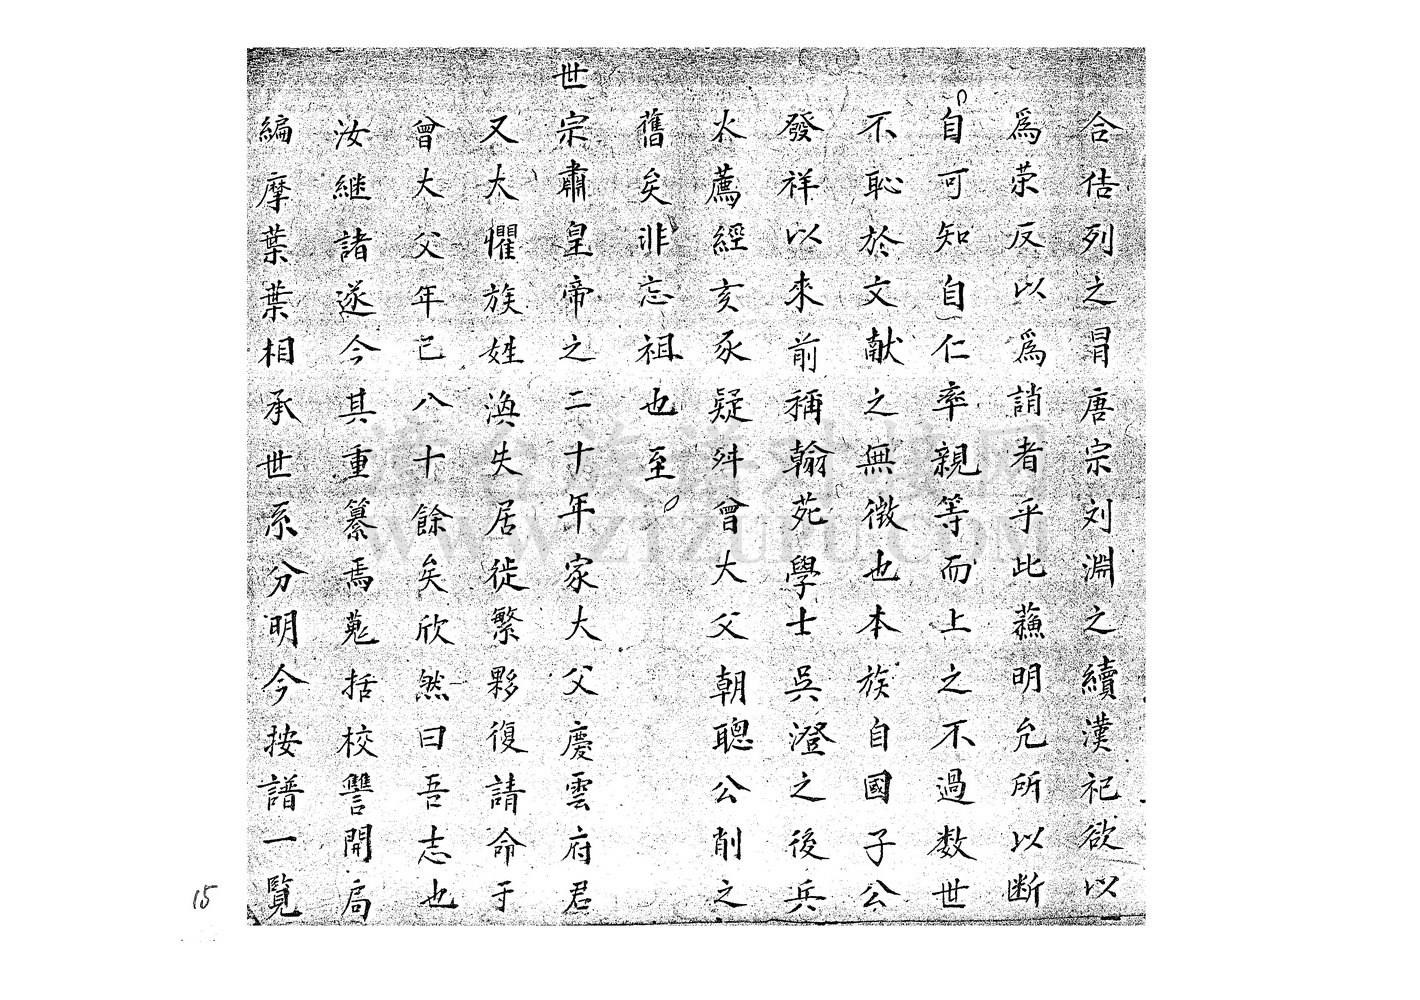 合估列之冒唐宗刘淵之續漢祀欲以
爲荣反以爲誚者乎此蘓明允所以断
自可知自仁率親等而上之不過数世
不恥於文献之無徵也本族自國子公
發祥以來前稱翰苑學士吳澄之後兵
火薦經亥豕疑舛曾大父朝聰公削之
舊矣非忘祖也至
世宗肅皇帝之二十年家大父慶雲府君
又大懼族姓渙失居徙繁夥復請命于
曾大父年已八十餘矣欣然曰吾志也
汝継諸遂今其重纂焉蒐括校讐開局
編摩葉葉相承世系分明今按譜一覽
15
漳台族谱对接网
WWW.ZTZUPU.COM